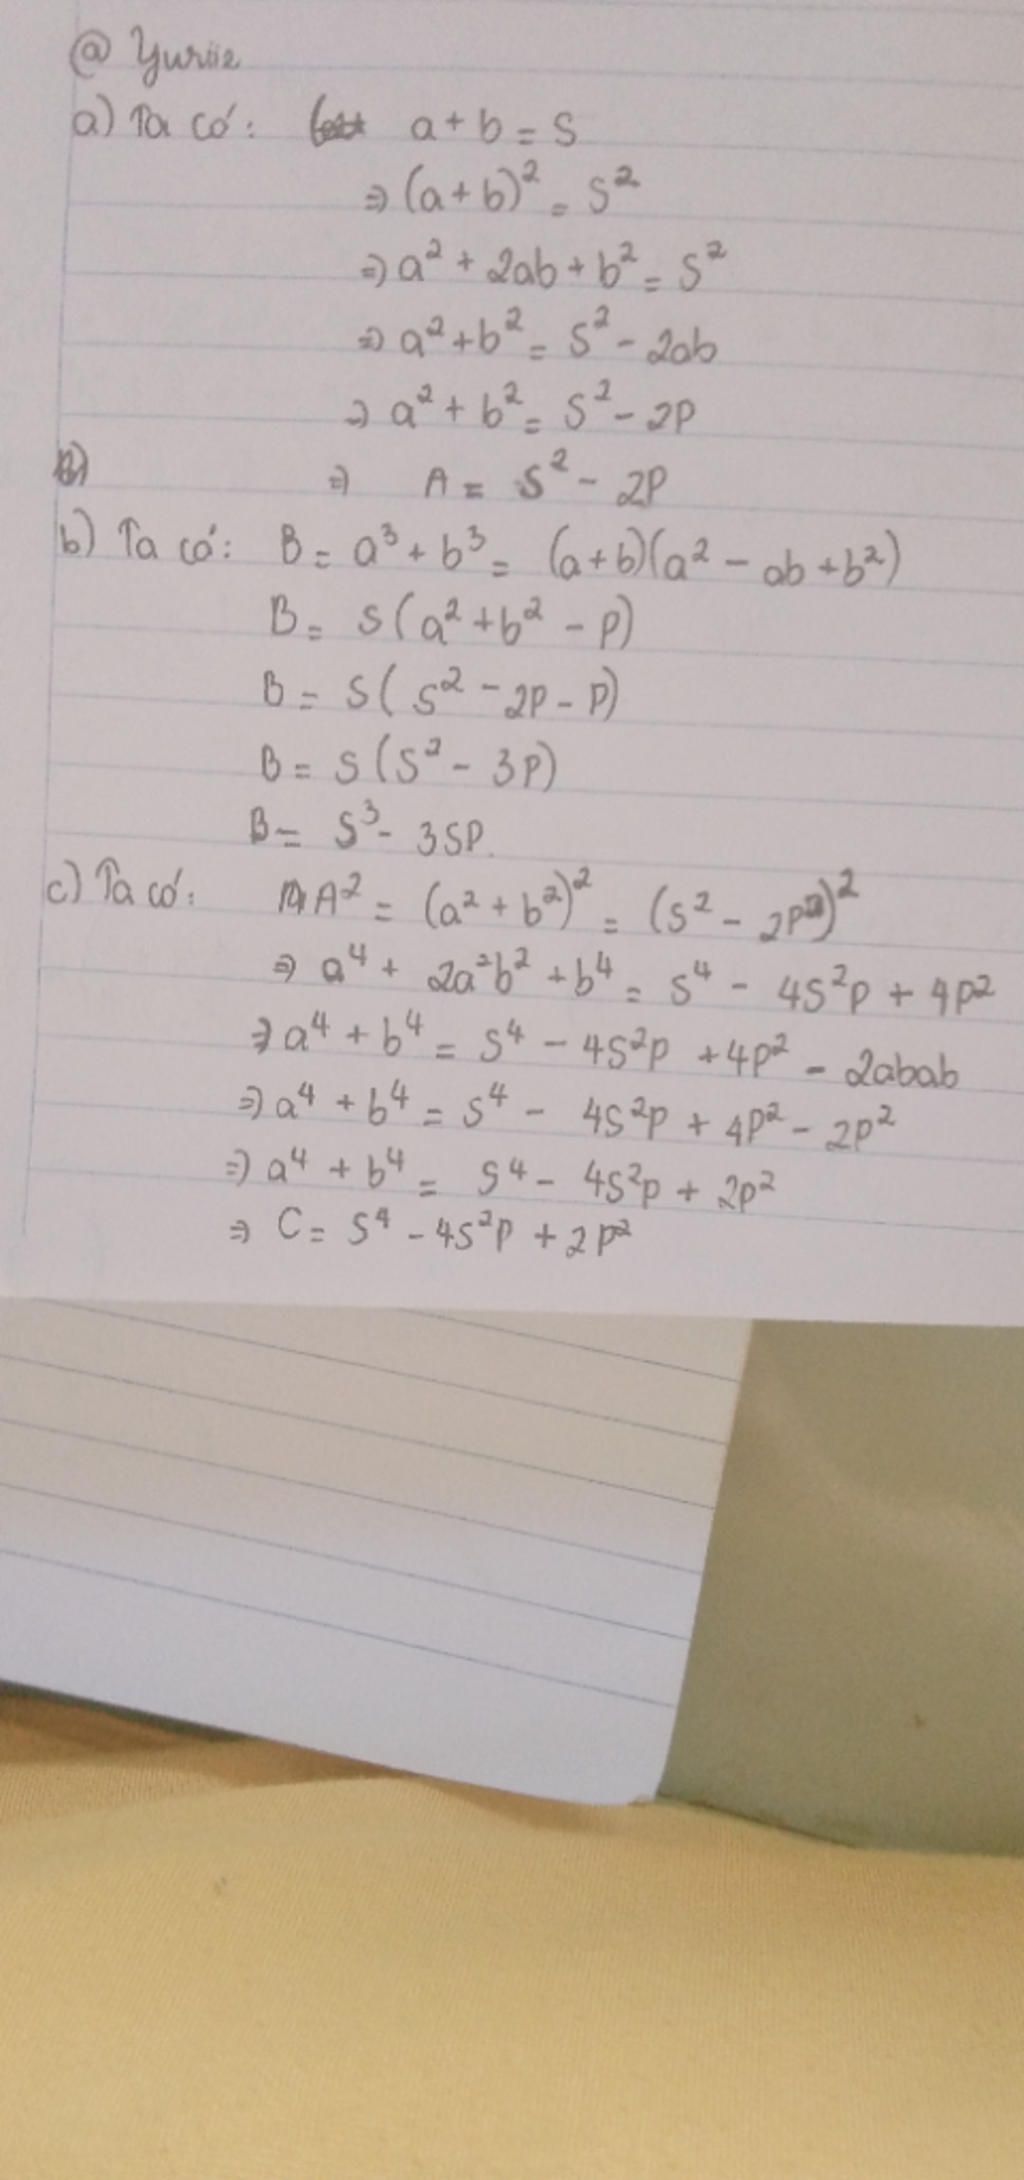 @ Yuriie
a) Ta có: a + b = S
⇒ (a + b)² = S²
⇒ a² + 2ab + b² = S²
⇒ a² + b² = S² - 2ab
⇒ a² + b² = S² - 2P
⇒ A = S² - 2P
b) Ta có: B = a³ + b³ = (a + b)(a² - ab + b²)
B = S(a² + b² - P)
B = S(S² - 2P - P)
B = S(S² - 3P)
B = S³ - 3SP.
c) Ta có: A² = (a² + b²)² = (S² - 2P)²
⇒ a⁴ + 2a²b² + b⁴ = S⁴ - 4S²P + 4P²
⇒ a⁴ + b⁴ = S⁴ - 4S²P + 4P² - 2abab
⇒ a⁴ + b⁴ = S⁴ - 4S²P + 4P² - 2P²
⇒ a⁴ + b⁴ = S⁴ - 4S²P + 2P²
⇒ C = S⁴ - 4S²P + 2P²